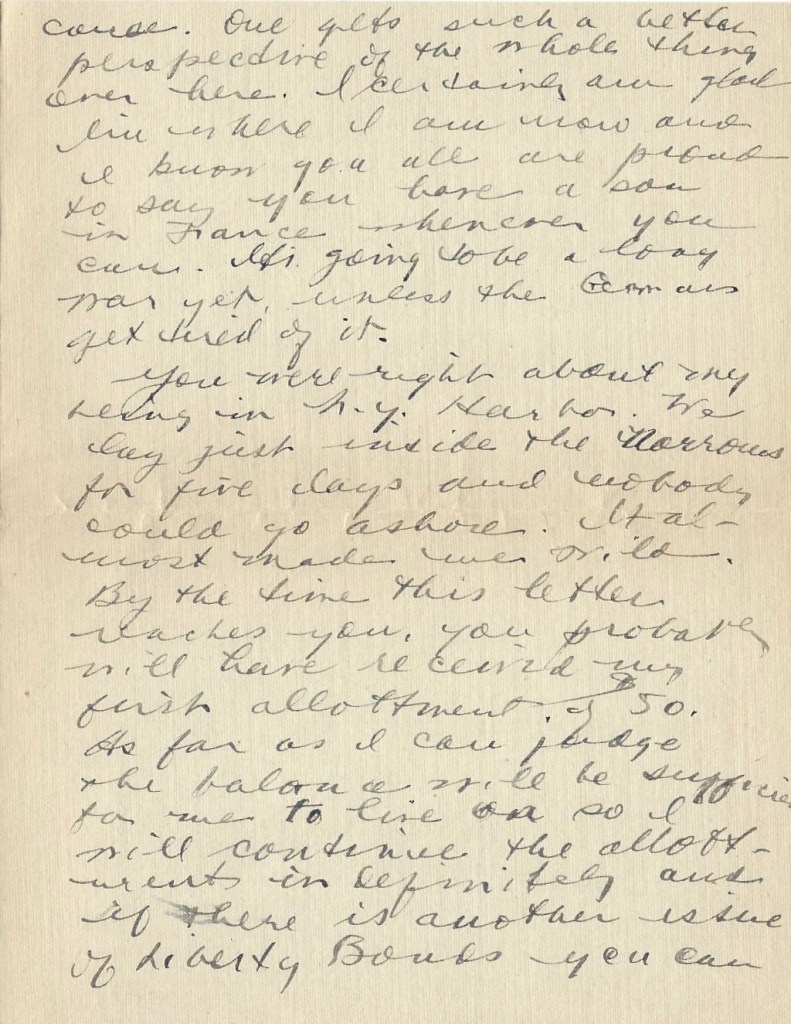 cause. One gets such a better
perspective of the whole thing
over here. I certainly am glad
I'm where I am now and
I know you all are proud
to say you have a son
in France whenever you
can. It's going to be a long
war yet, unless the Germans
get tired of it.
You were right about my
being in N.Y. Harbor. We
lay just inside the Narrows
for five days and nobody
could go ashore. It al-
most made me wild.
By the time this letter
reaches you, you probably
will have received my
first allottment of $50.
As far as I can judge
the balance will be sufficient
for me to live on so I
will continue the allott-
ments indefinitely and
if there is another issue
of Liberty Bonds you can